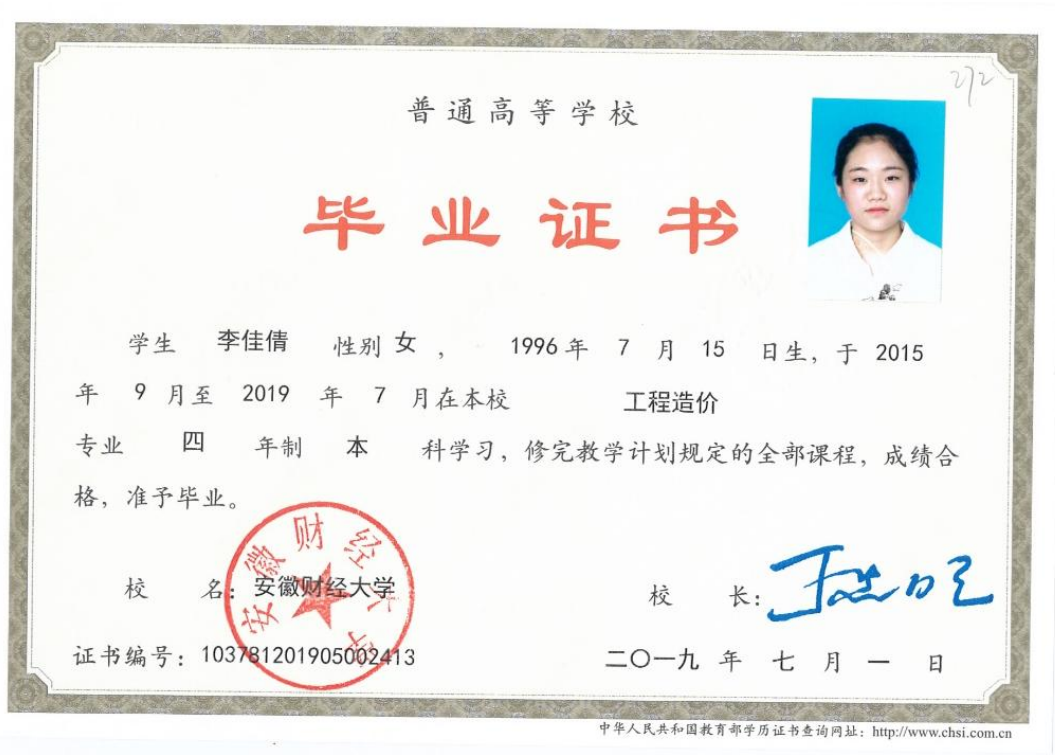 272
普通高等学校
毕业证书
学生 李佳倩 性别 女 , 1996 年 7 月 15 日生, 于 2015
年 9 月至 2019 年 7 月在本校 工程造价
专业 四 年制 本 科学习, 修完教学计划规定的全部课程, 成绩合
格, 准予毕业。
安徽财经大学
校 名: 安徽财经大学 校 长:
证书编号: 103781201905002413 二〇一九 年 七 月 一 日
中华人民共和国教育部学历证书查询网址: http://www.chsi.com.cn